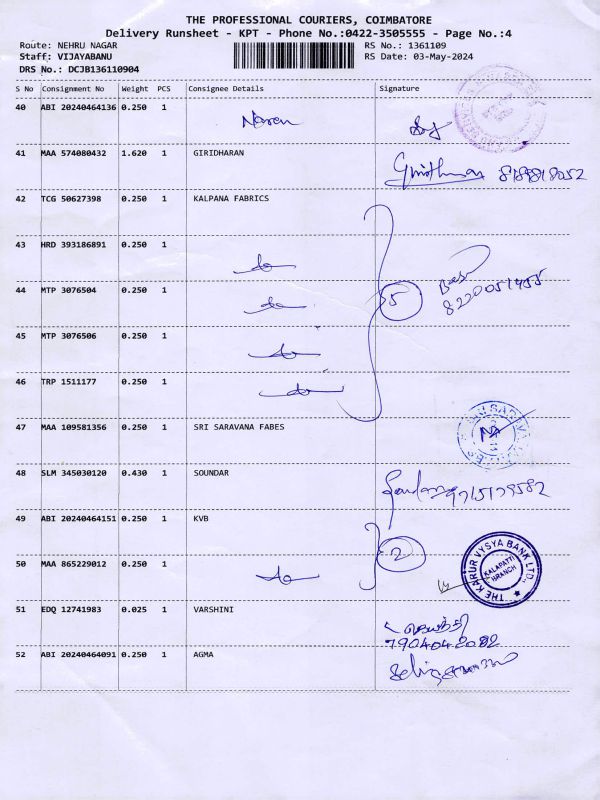 THE PROFESSIONAL COURIERS, COIMBATORE
Delivery Runsheet - KPT - Phone No.:0422-3505555 - Page No.:4
Route: NEHRU NAGAR RS No.: 1361109
Staff: VIJAYABANU RS Date: 03-May-2024
DRS No.: DCJB136110904
S No Consignment No Weight PCS Consignee Details Signature
40 ABI 20240464136 0.250 1 Naren
41 MAA 574080432 1.620 1 GIRIDHARAN
42 TCG 50627398 0.250 1 KALPANA FABRICS
43 HRD 393186891 0.250 1 do
44 MTP 3076504 0.250 1 do 5
45 MTP 3076506 0.250 1 do
46 TRP 1511177 0.250 1 do
47 MAA 109581356 0.250 1 SRI SARAVANA FABES
48 SLM 345030120 0.430 1 SOUNDAR 9715179582
49 ABI 20240464151 0.250 1 KVB
50 MAA 865229012 0.250 1 do 2 THE KARUR VYSYA BANK LTD., KALAPATTI BRANCH
51 EDQ 12741983 0.025 1 VARSHINI
7904042082
52 ABI 20240464091 0.250 1 AGMA